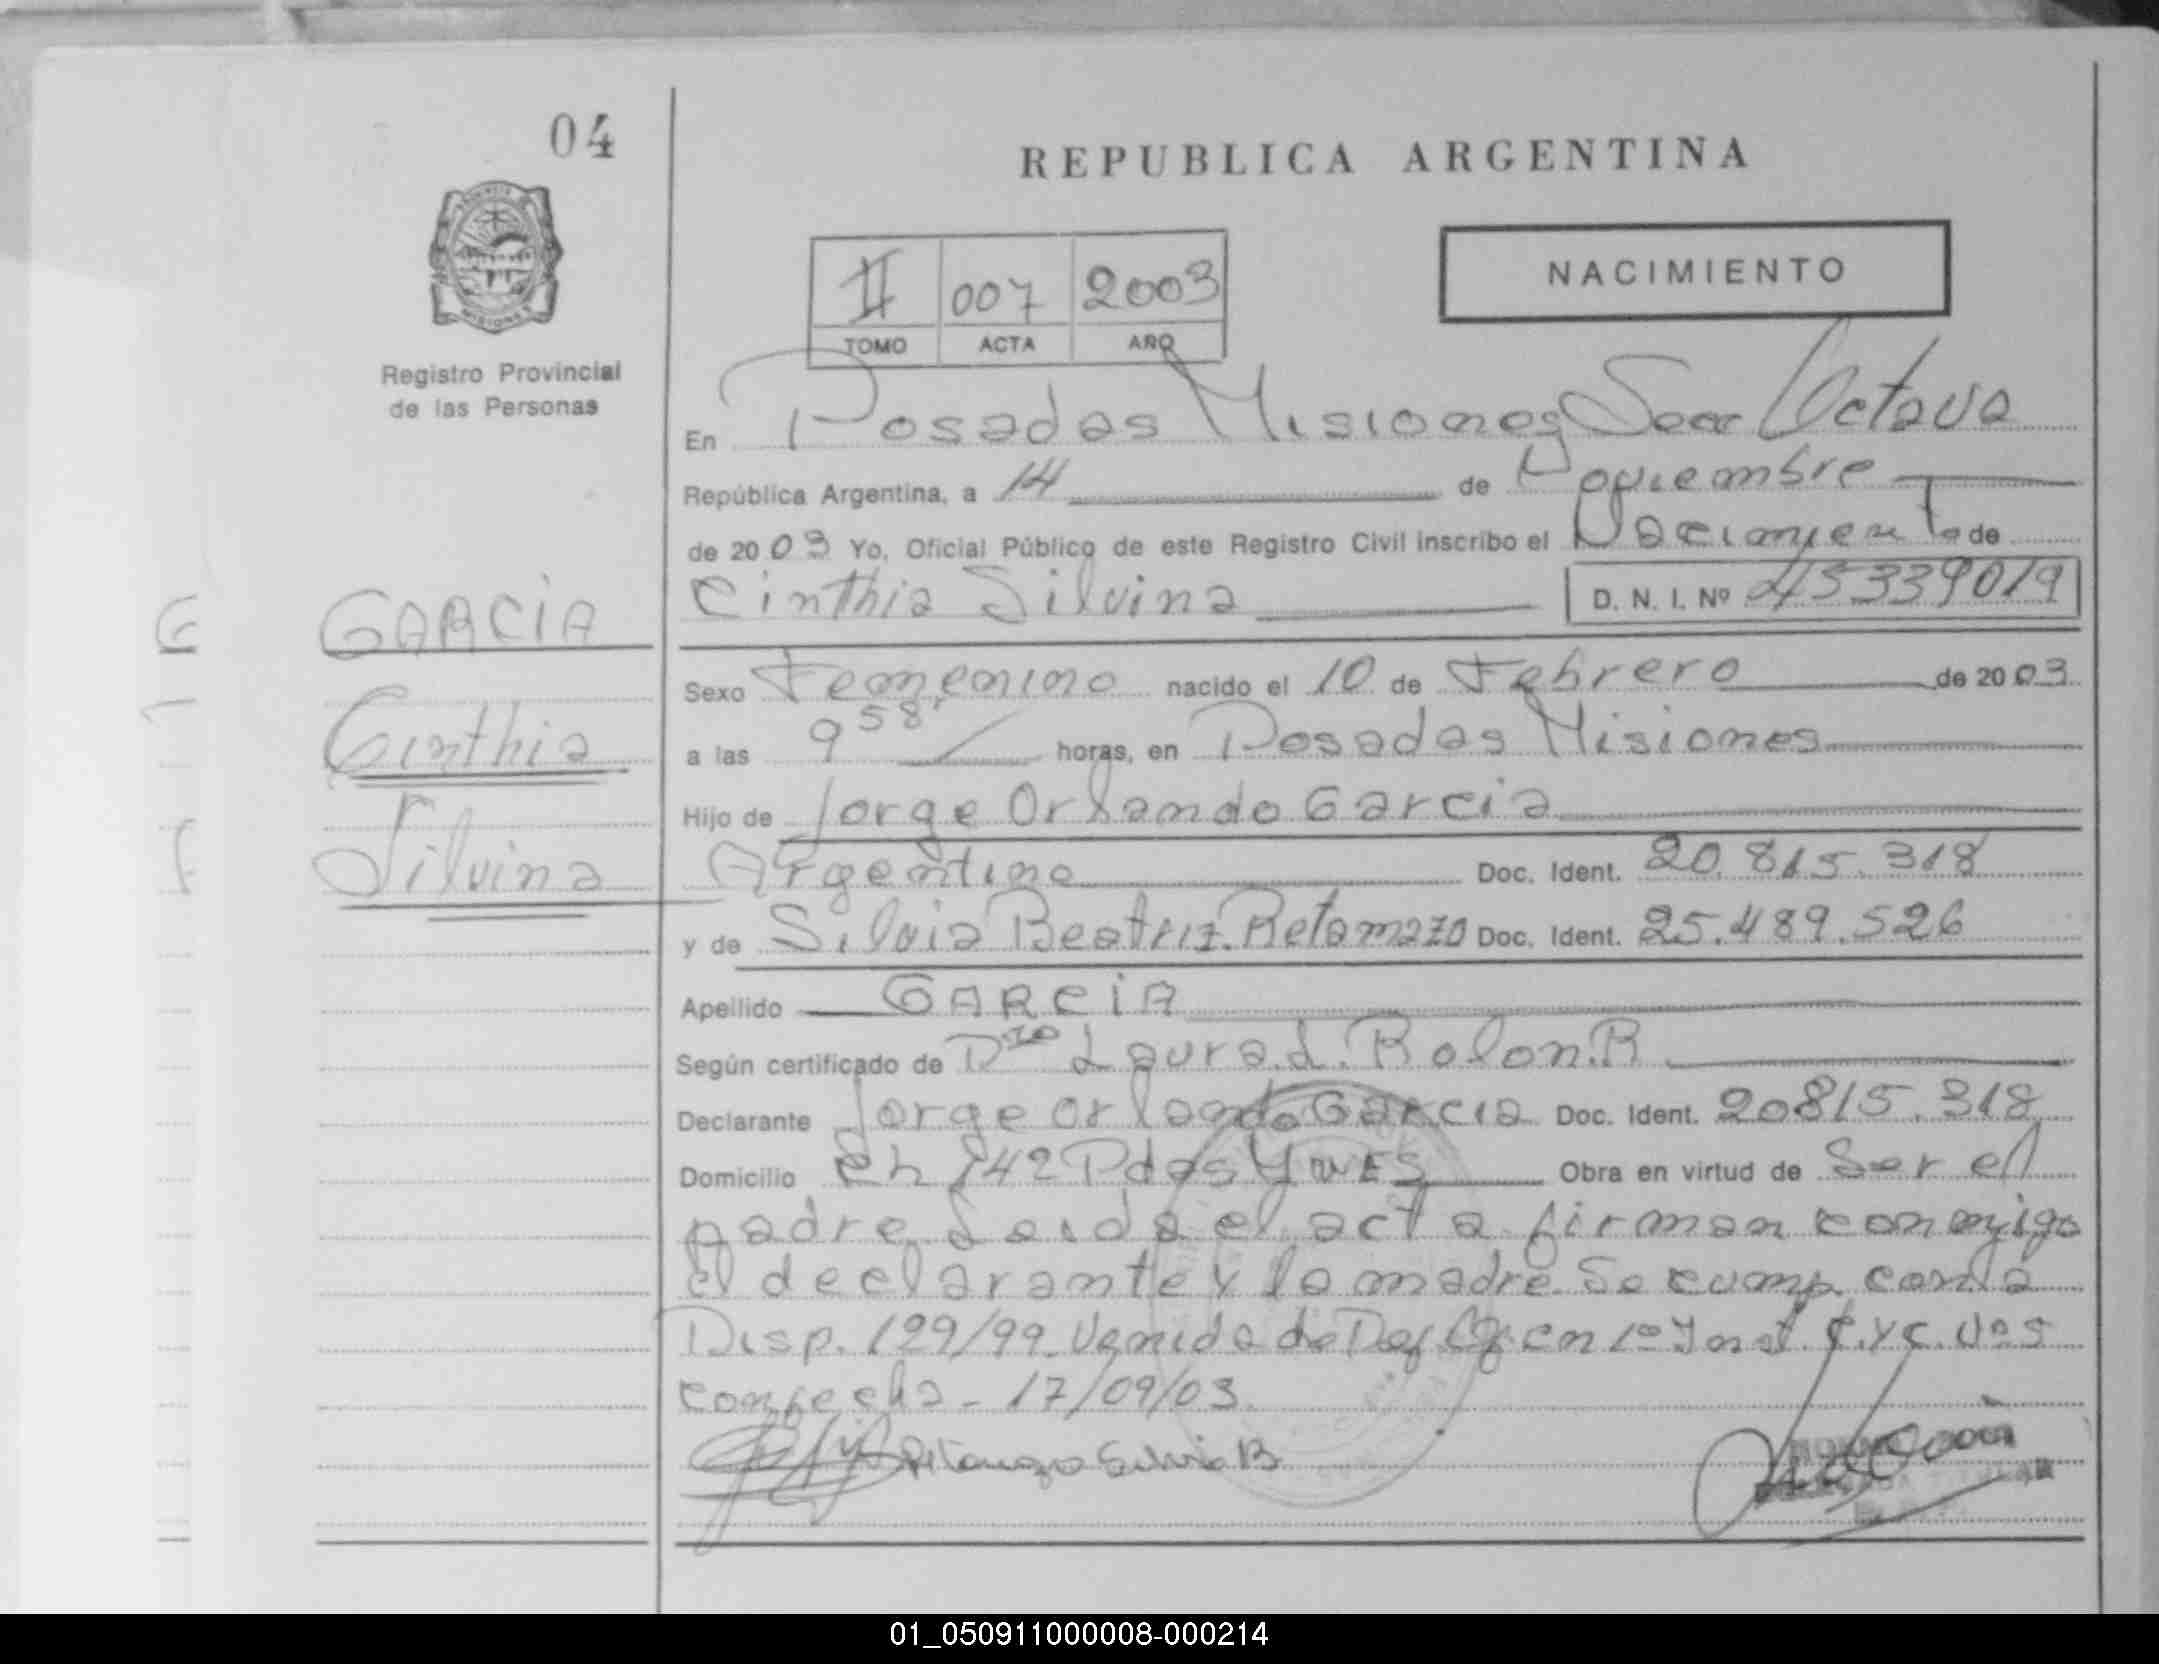 04
REPUBLICA ARGENTINA
MISIONES
Registro Provincial
de las Personas
II 007 2003
TOMO ACTA AÑO
NACIMIENTO
En Posadas Misiones Secc Octava
República Argentina, a 14 de Noviembre
de 2003 Yo, Oficial Público de este Registro Civil inscribo el Nacimiento de
G GARCIA
Cinthia Silvina D. N. I. Nº 45339019
Sexo Femenino nacido el 10 de Febrero de 2003
Cinthia
a las 9 58' horas, en Posadas Misiones
Hijo de Jorge Orlando Garcia
Silvina
Argentino Doc. Ident. 20.815.318
y de Silvia Beatriz Retamozo Doc. Ident. 25.489.526
Apellido GARCIA
Según certificado de Laura L. Rolon.R
Declarante Jorge Orlando Garcia Doc. Ident. 20815.318
Domicilio Ch 142 Pdas Mnes Obra en virtud de Ser el
padre Leida el acta firman conmigo
el declarante y la madre Se cump. con la
Disp. 129/99 Venida de Def Of en 1º Inst. C.y C.
con fecha - 17/09/03.
Silvia B
01_050911000008-000214